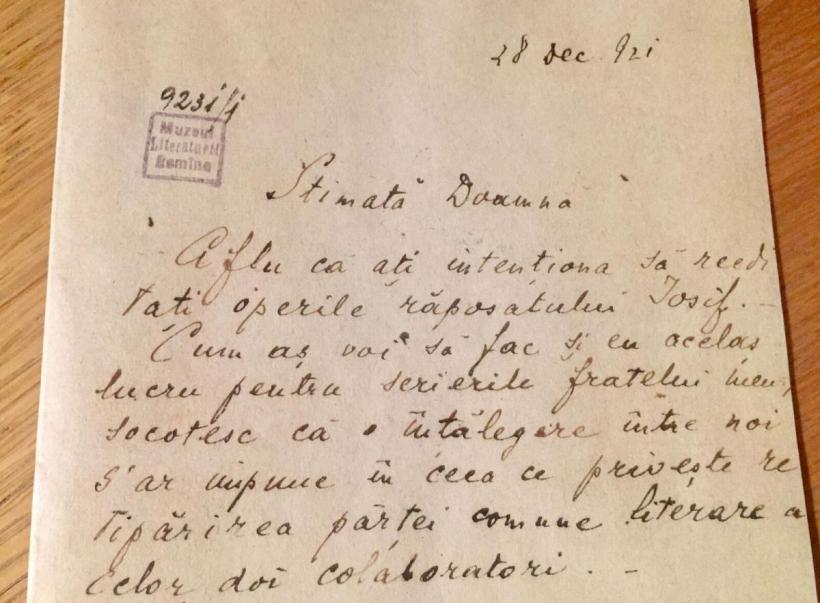 28 Dec 921
9231/1
Muzeul
Literaturii
Romîne
Stimată Doamnă
Aflu că ați intenționa să reedi
tați operile răposatului Iosif. –
Cum aș voi să fac și eu acelaș
lucru pentru scrierile fratelui meu,
socotesc că o întălegere între noi
s'ar impune în ceea ce privește re
tipărirea părței comune literare a
celor doi colaboratori. –